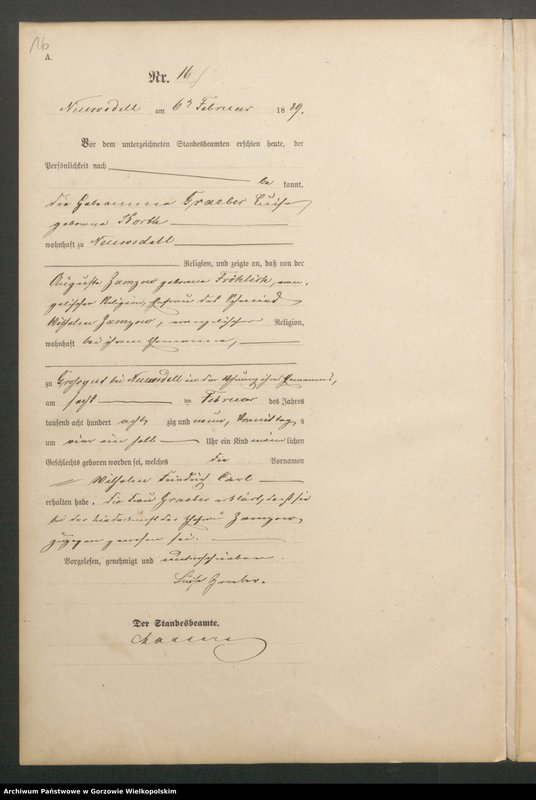 16
A.
Nr. 16
Neuwedell am 6ten Februar 1889.
Vor dem unterzeichneten Standesbeamten erschien heute, der
Persönlichkeit nach
be kannt,
die Hebamme Graeber Luise
geborene Korth
wohnhaft zu Neuwedell
Religion, und zeigte an, daß von der
Auguste Zamzow geborene Fröhlich, evan-
gelischer Religion, Ehefrau des
Wilhelm Zamzow, evangelischer Religion,
wohnhaft bei ihrem Ehemanne,
zu bei Neuwedell in der Wohnung ihres Ehemannes,
am Februar des Jahres
tausend acht hundert acht zig und neun, Vormittag s
um vier ein halb Uhr ein Kind männ lichen
Geschlechts geboren worden sei, welches die Vornamen
Wilhelm Friedrich Carl
erhalten habe. Die Frau Graeber erklärt, daß sie
bei der Niederkunft der Ehefrau Zamzow
zugegen gewesen sei.
Vorgelesen, genehmigt und unterschrieben.
Luise Graeber.
Der Standesbeamte.
Archiwum Państwowe w Gorzowie Wielkopolskim